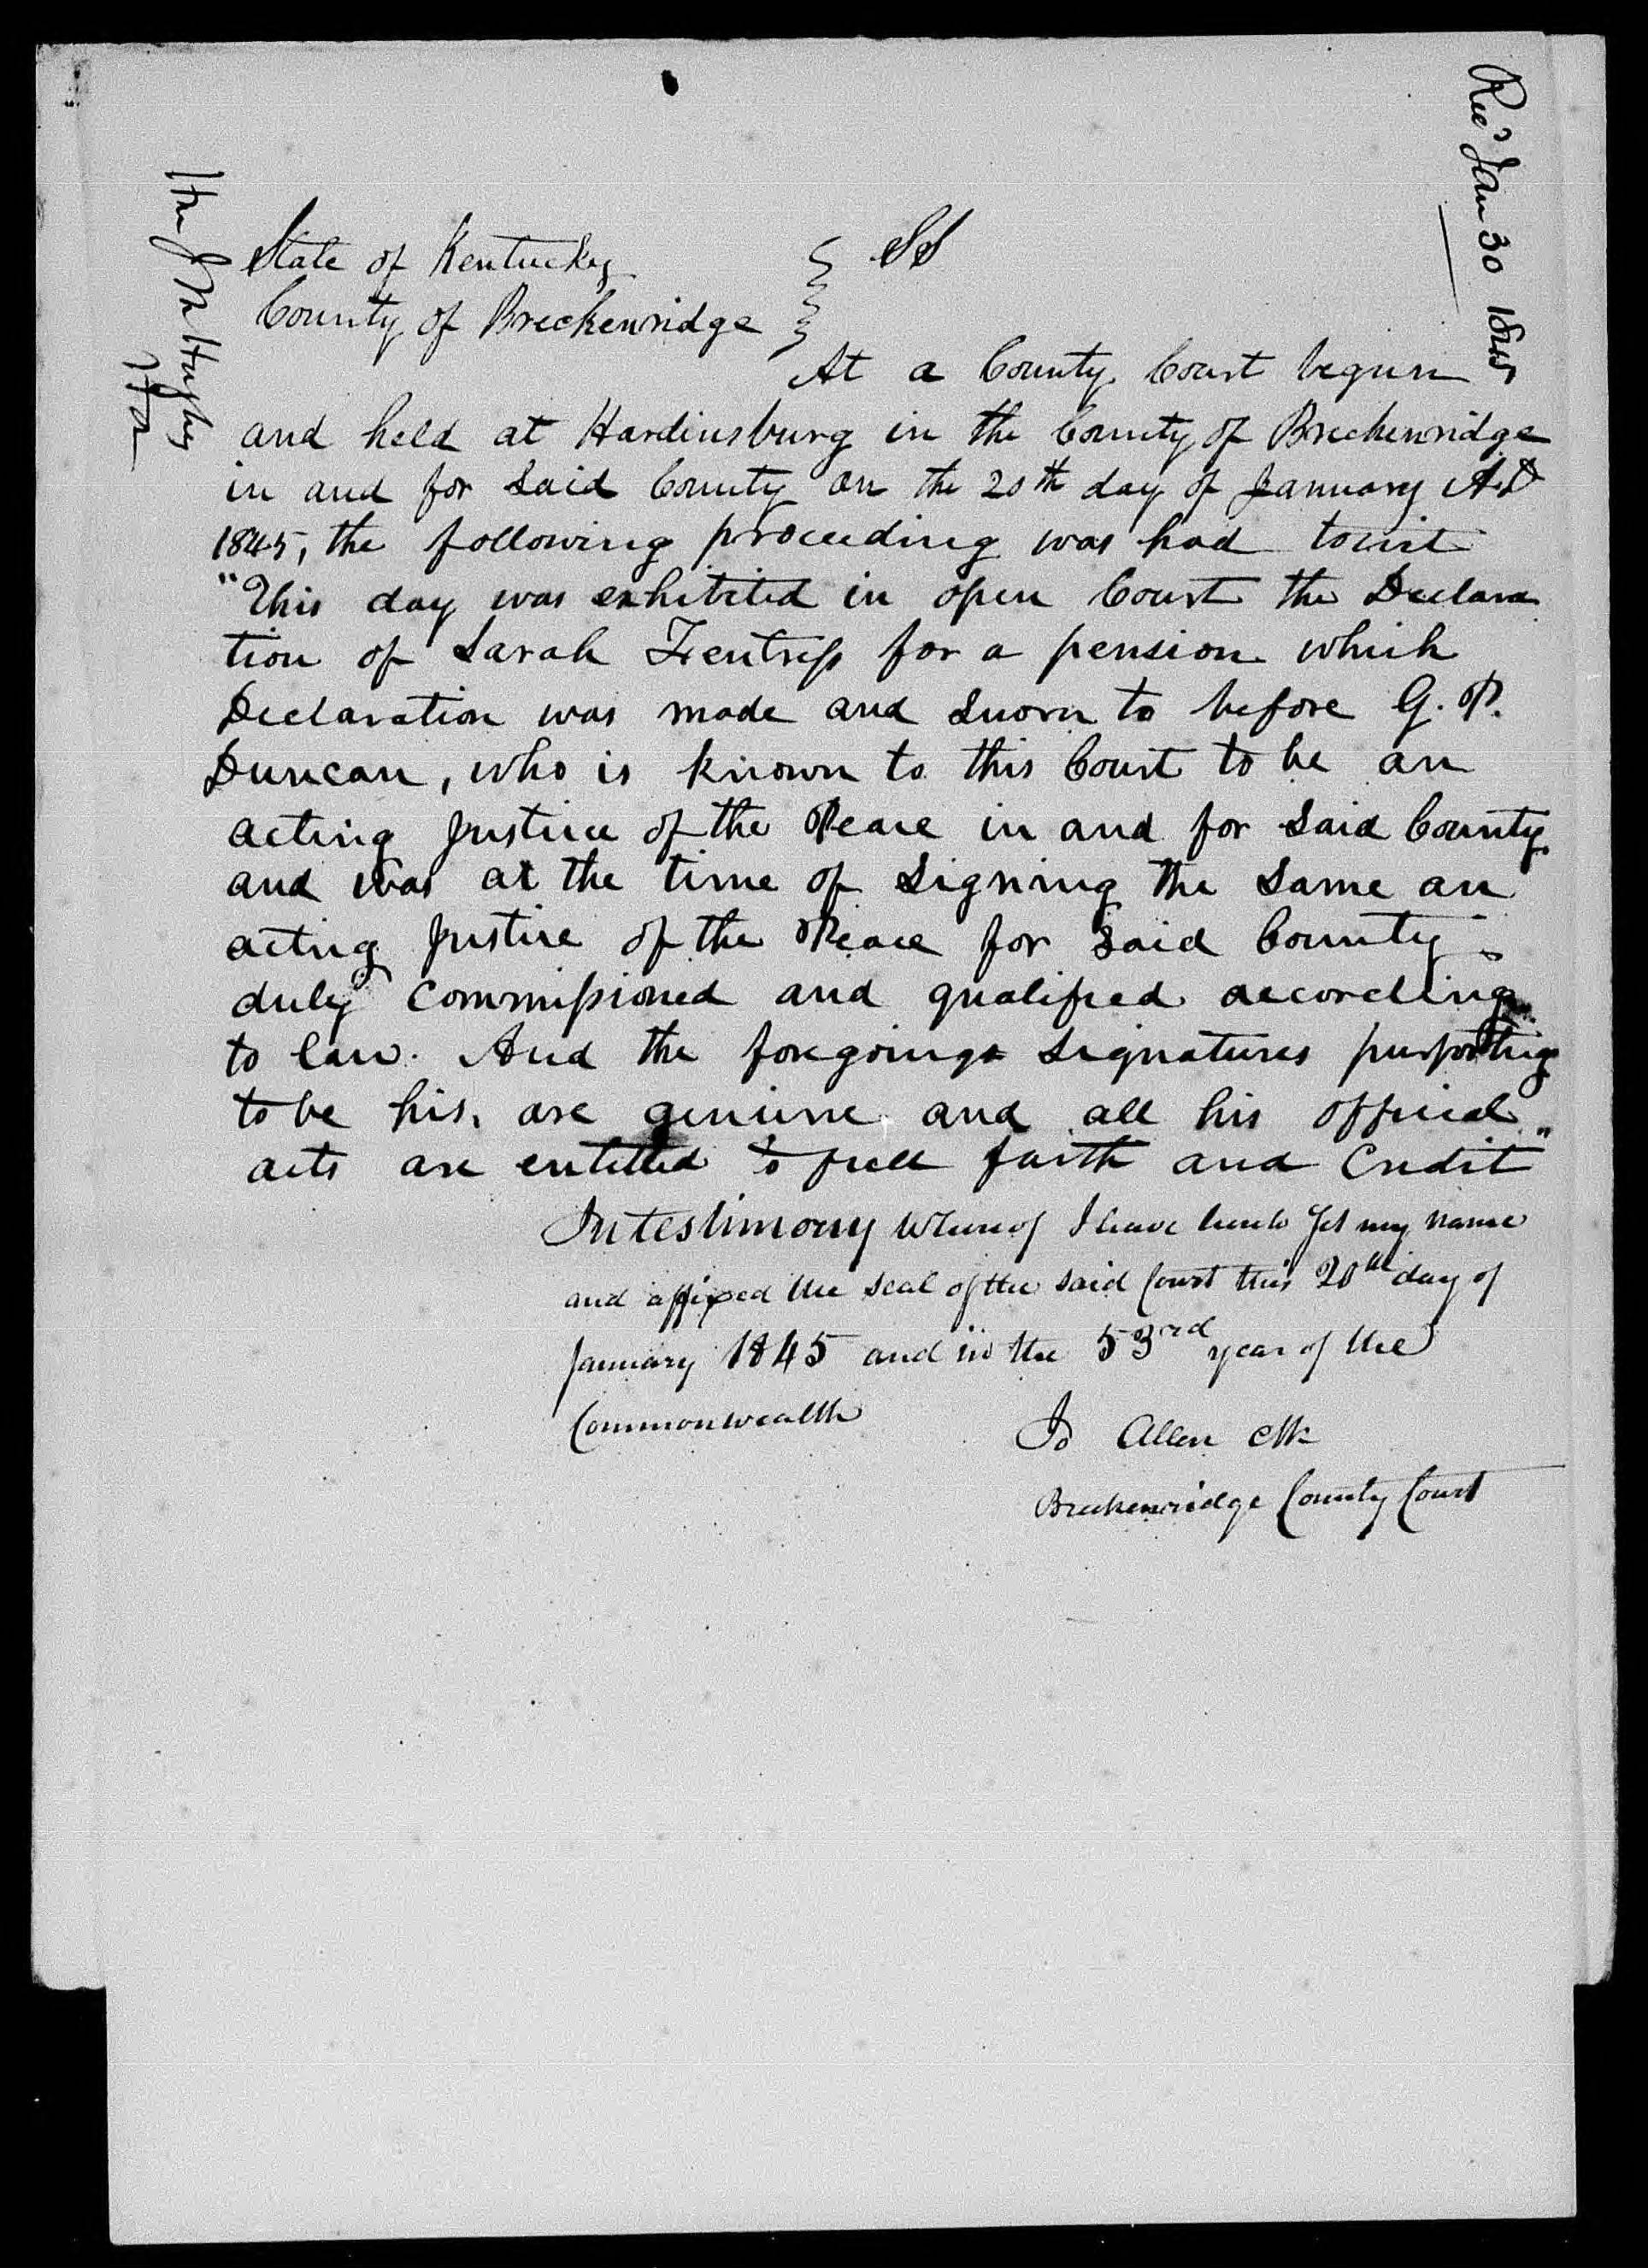 Recd Jan 30 1845
State of Kentucky } SS
County of Breckenridge }
At a County Court begun
and held at Hardinsburg in the County of Breckenridge
in and for Said County on the 20th day of January A.D
1845, the following proceeding was had towit
"This day was exhibited in open Court the Declara
tion of Sarah Fentress for a pension which
Declaration was made and Sworn to before G. P.
Duncan, who is known to this Court to be an
acting Justice of the Peace in and for Said County
and was at the time of Signing the Same an
acting Justice of the Peace for Said County
duly Commissioned and qualified according
to law. And the foregoing Signatures purporting
to be his, are genuine and all his official
acts are entitled to full faith and Credit"
In testimony whereof I have hereto set my name
and affixed the seal of the said Court this 20th day of
January 1845 and in the 53rd year of the
Commonwealth
Jo Allen Clk
Breckenridge County Court